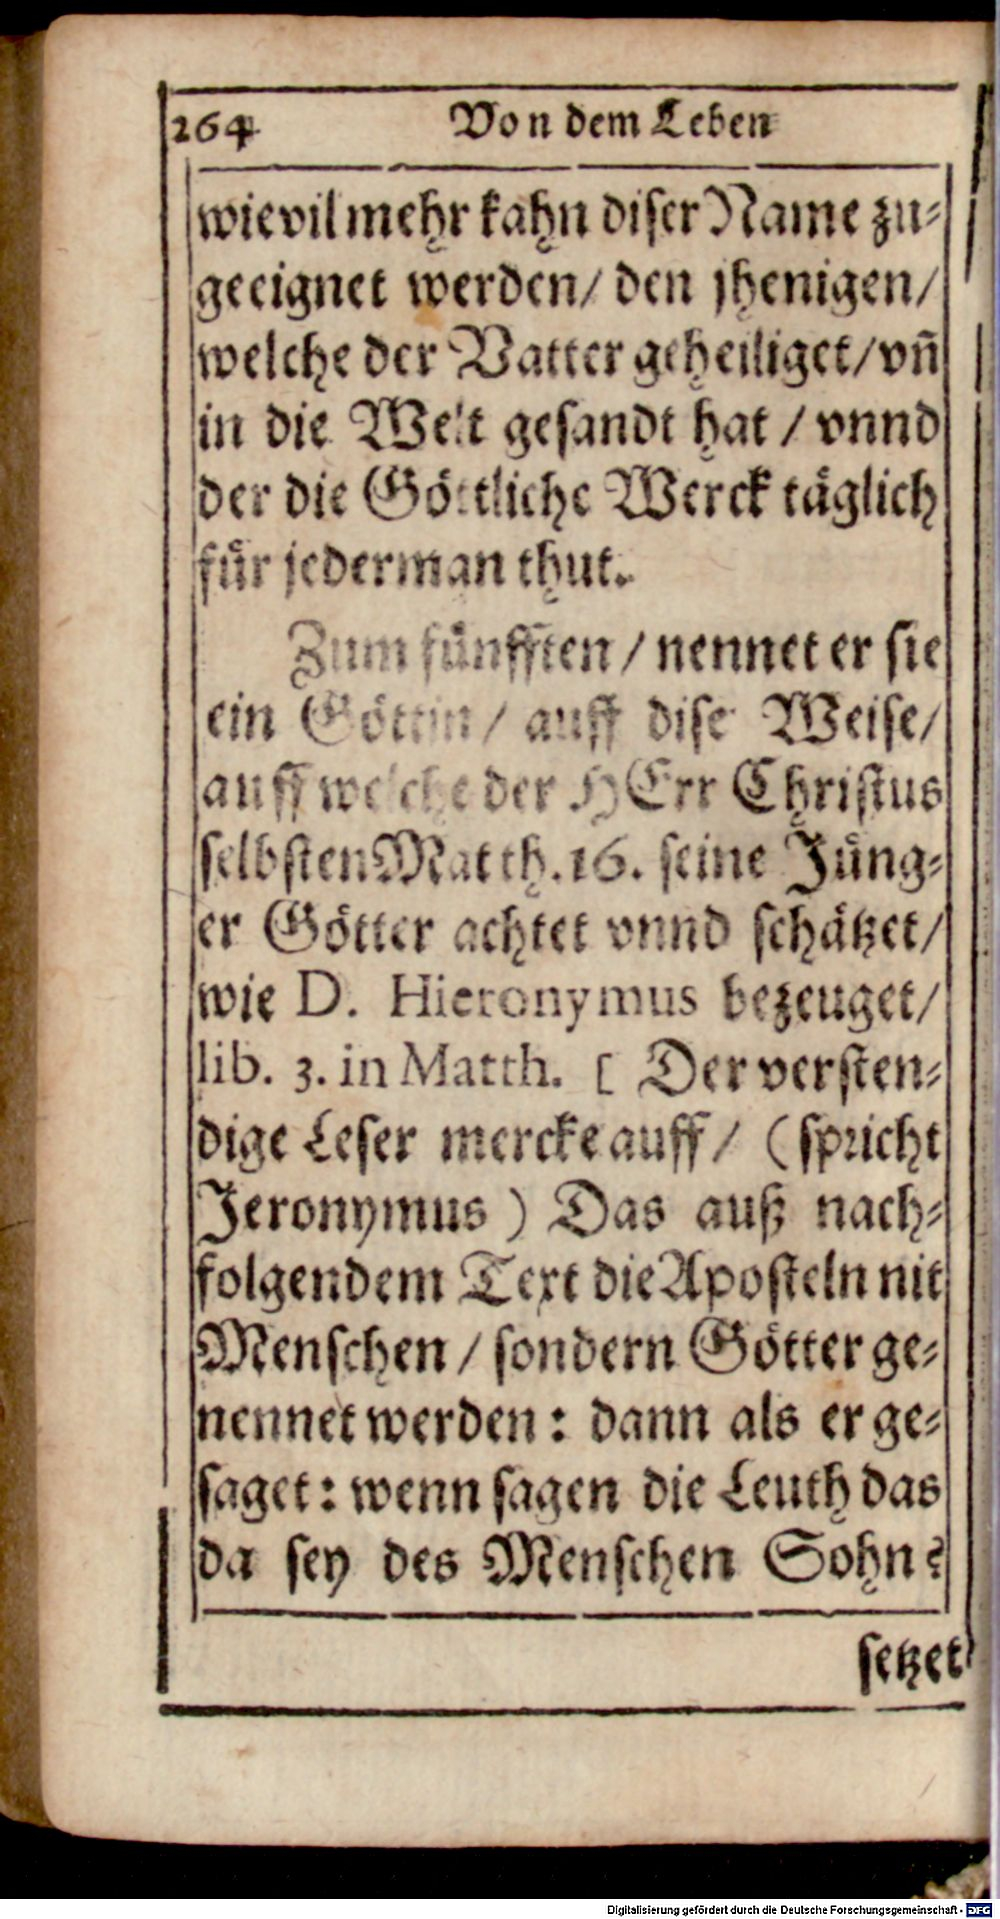 264 Von dem Leben
wie vil mehr kahn diser Name zu-
geeignet werden/ den jhenigen/
welche der Vatter geheiliget/ vn̄
in die Welt gesandt hat / vnnd
der die Göttliche Werck täglich
für jederman thut.
Zum fünfften / nennet er sie
ein Göttin / auff dise Weise/
auff welche der HErr Christus
selbsten Matth. 16. seine Jüng-
er Götter achtet vnnd schätzet/
wie D. Hieronymus bezeuget/
lib. 3. in Matth. [ Der versten-
dige Leser mercke auff / ( spricht
Jeronymus ) Das auß nach-
folgendem Text die Aposteln nit
Menschen / sondern Götter ge-
nennet werden : dann als er ge-
saget : wenn sagen die Leuth das
da sey des Menschen Sohn?
setzet
Digitalisierung gefördert durch die Deutsche Forschungsgemeinschaft - DFG